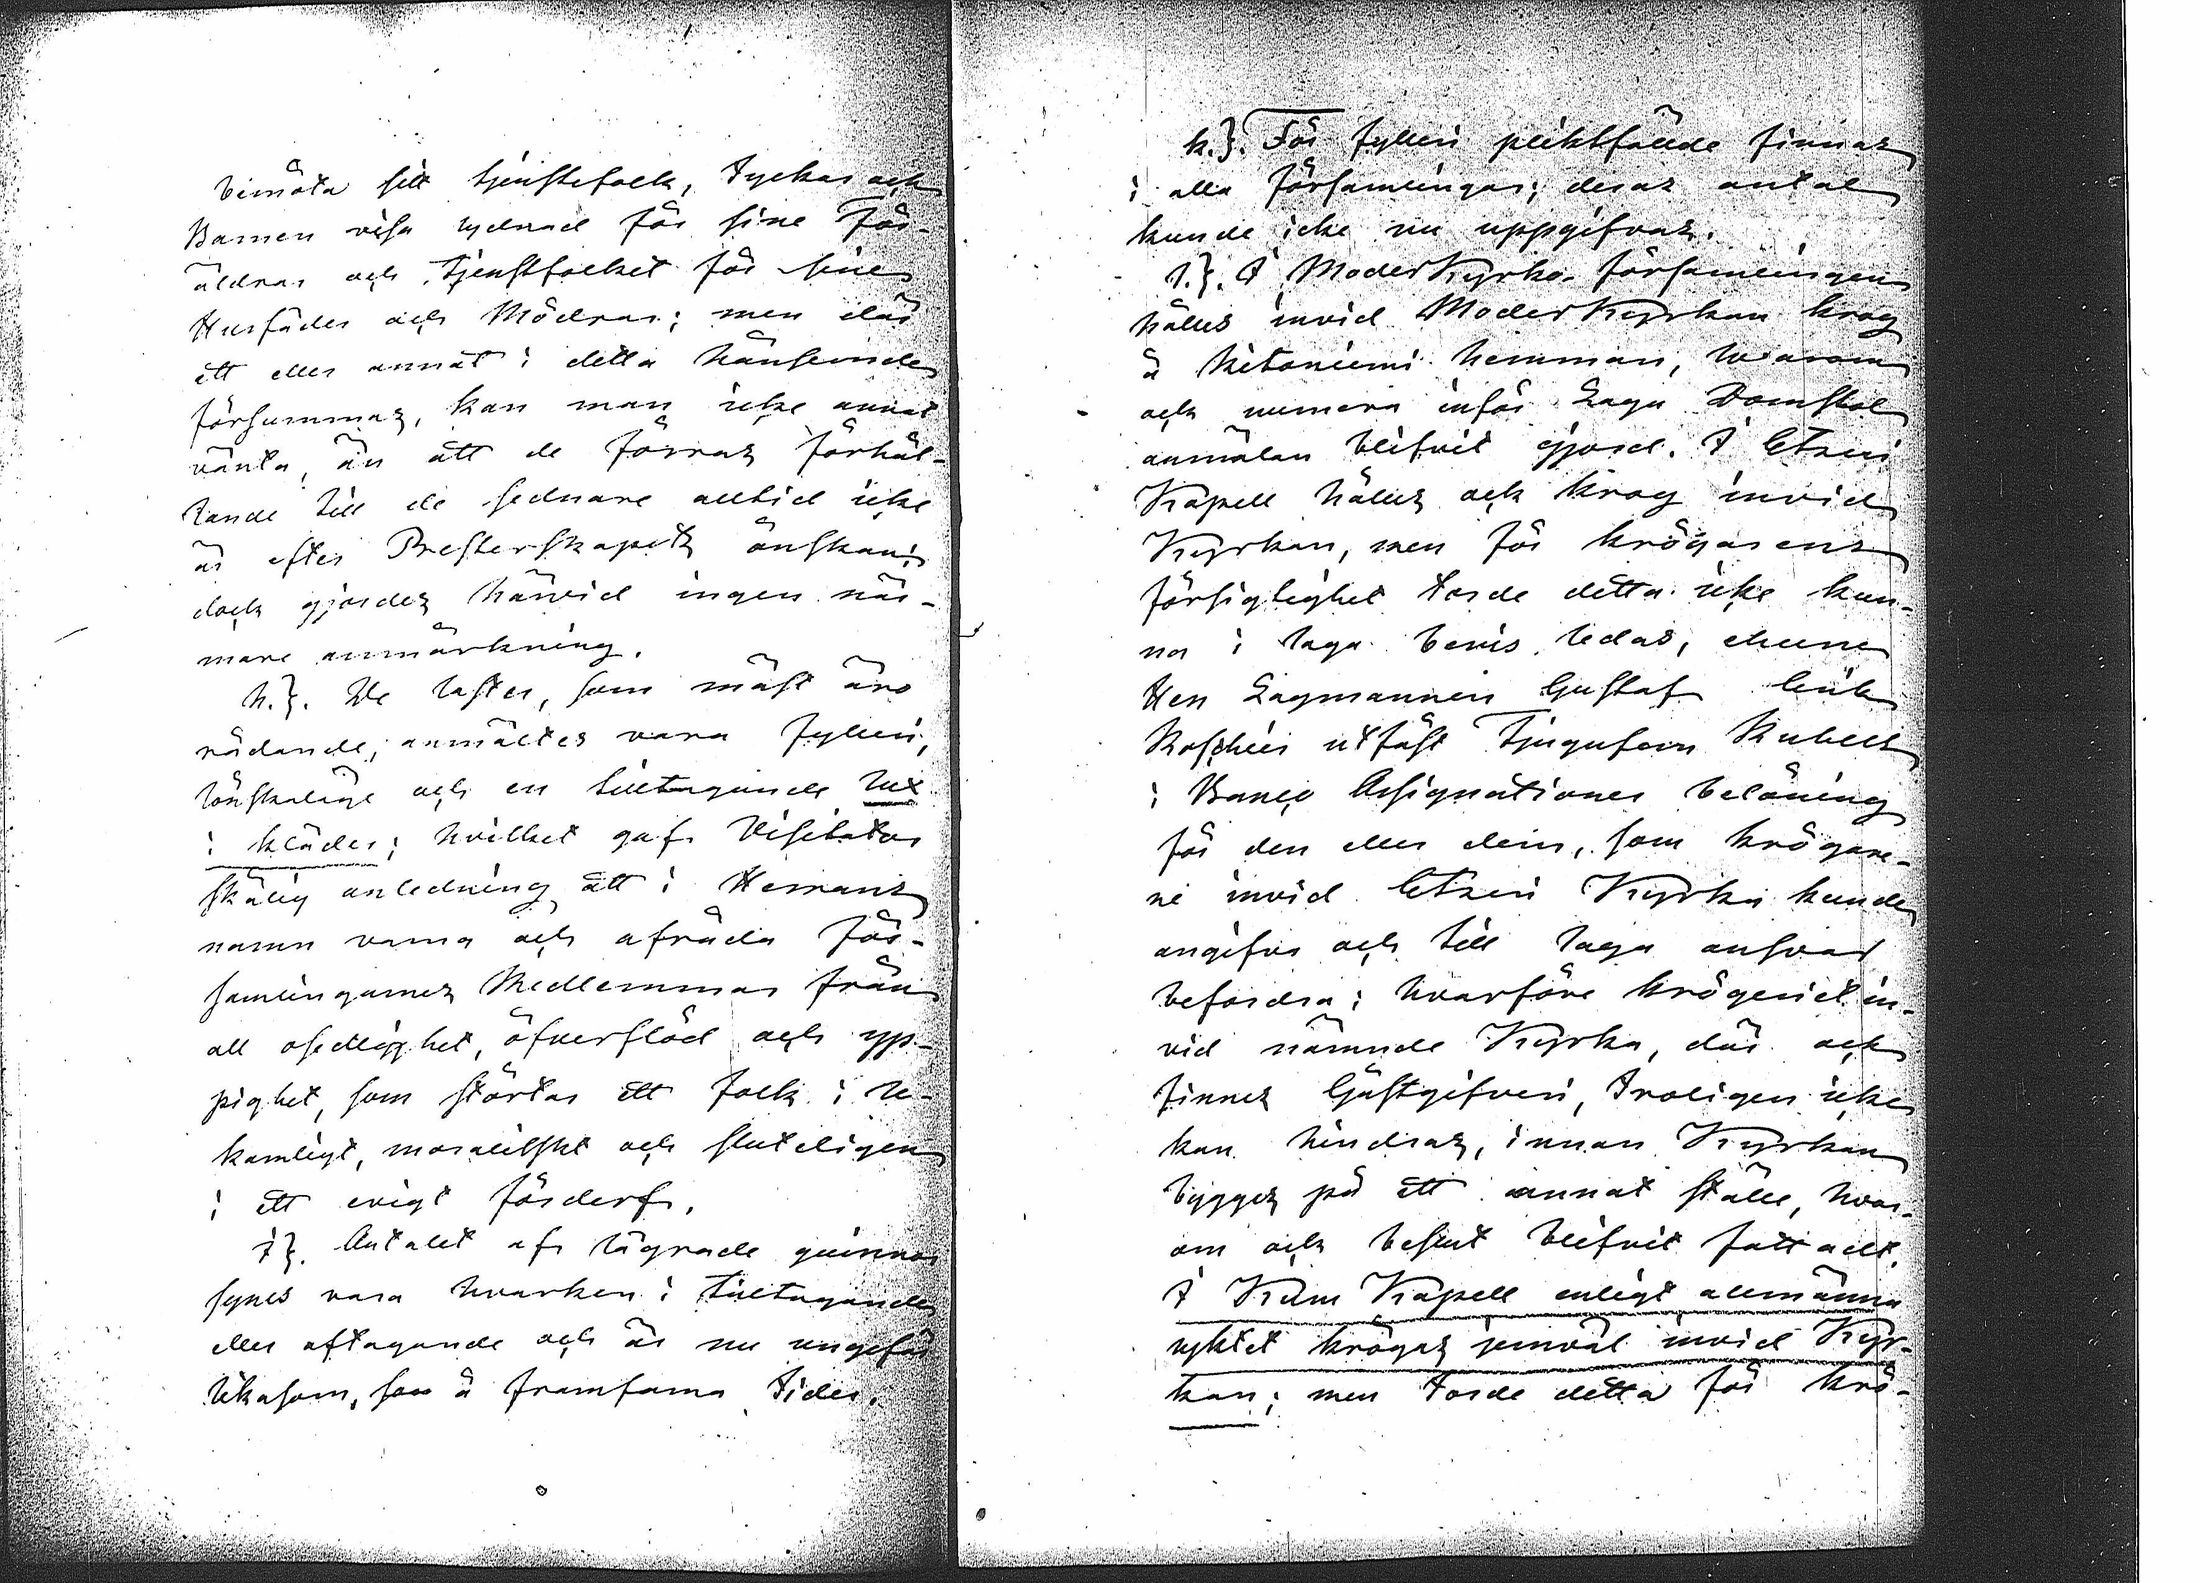 bemöta sitt tjenstefolk, tyckas ock
Barnen visa lydnad för sine För-
äldrar och Tjenstfolket för sine
Husfäder och Mödrar; men där
ett eller annat i detta hänseende
försummas, kan man icke annat
vänta, än att de förras förhål-
lande till de sednare alltid icke
är efter Presterskapets önskan;
dock gjordes härvid ingen när-
mare anmärkning.
h.}. De laster, som mäst äro
rådande, anmältes vara fylleri,
lönskaläge och en tilltagande lux
i kläder; hvilket gaf Visitator
skälig anledning att i Herrans
namn varna och afråda För-
samlingarnes Medlemmar från
all osedlighet, öfverflöd och yp-
pighet, som störtar ett folk i le-
kamligt, moraliskt och sluteligen
i ett evigt förderf.
i}. Antalet af lägrade quinnor
synes vara hvarken i tilltagande
eller aftagande och är nu ungefär
likasom, som i framfarna tider.
k.}. För fylleri pliktfällde finnas
i alla församlingar; deras antal
kunde icke nu uppgifvas.
l.}. I ModerKyrko-församlingen
hålles invid ModerKyrkan krog
å Nitoniemi hemman, hvarom
ock numera inför Laga Domstol
anmälan blifvit gjord. I Etseri
Kapell hålles ock krog invid
Kyrkan, men för krögarens
försigtighet torde detta icke kun-
na i laga bevis ledas, ehuru
Herr Lagmannen Gustaf Erik
Roschier utfäst Tjugufem Rubels
i Banco Assignationer belöning
för den eller dem, som krögare-
ne invid Etseri Kyrka kunde
angifva och till laga ansvar
befordra; hvarföre krögeriet in-
vid nämnde Kyrka, där ock
finnes Gästgifveri, troligen icke
kan hindras, innan Kyrkan
bygges på ett annat ställe, hvar-
om ock beslut blifvit fattadt.
I Kapell enligt allmänna
ryktet krögas jemväl invid Kyr-
kan; men torde detta för krö-